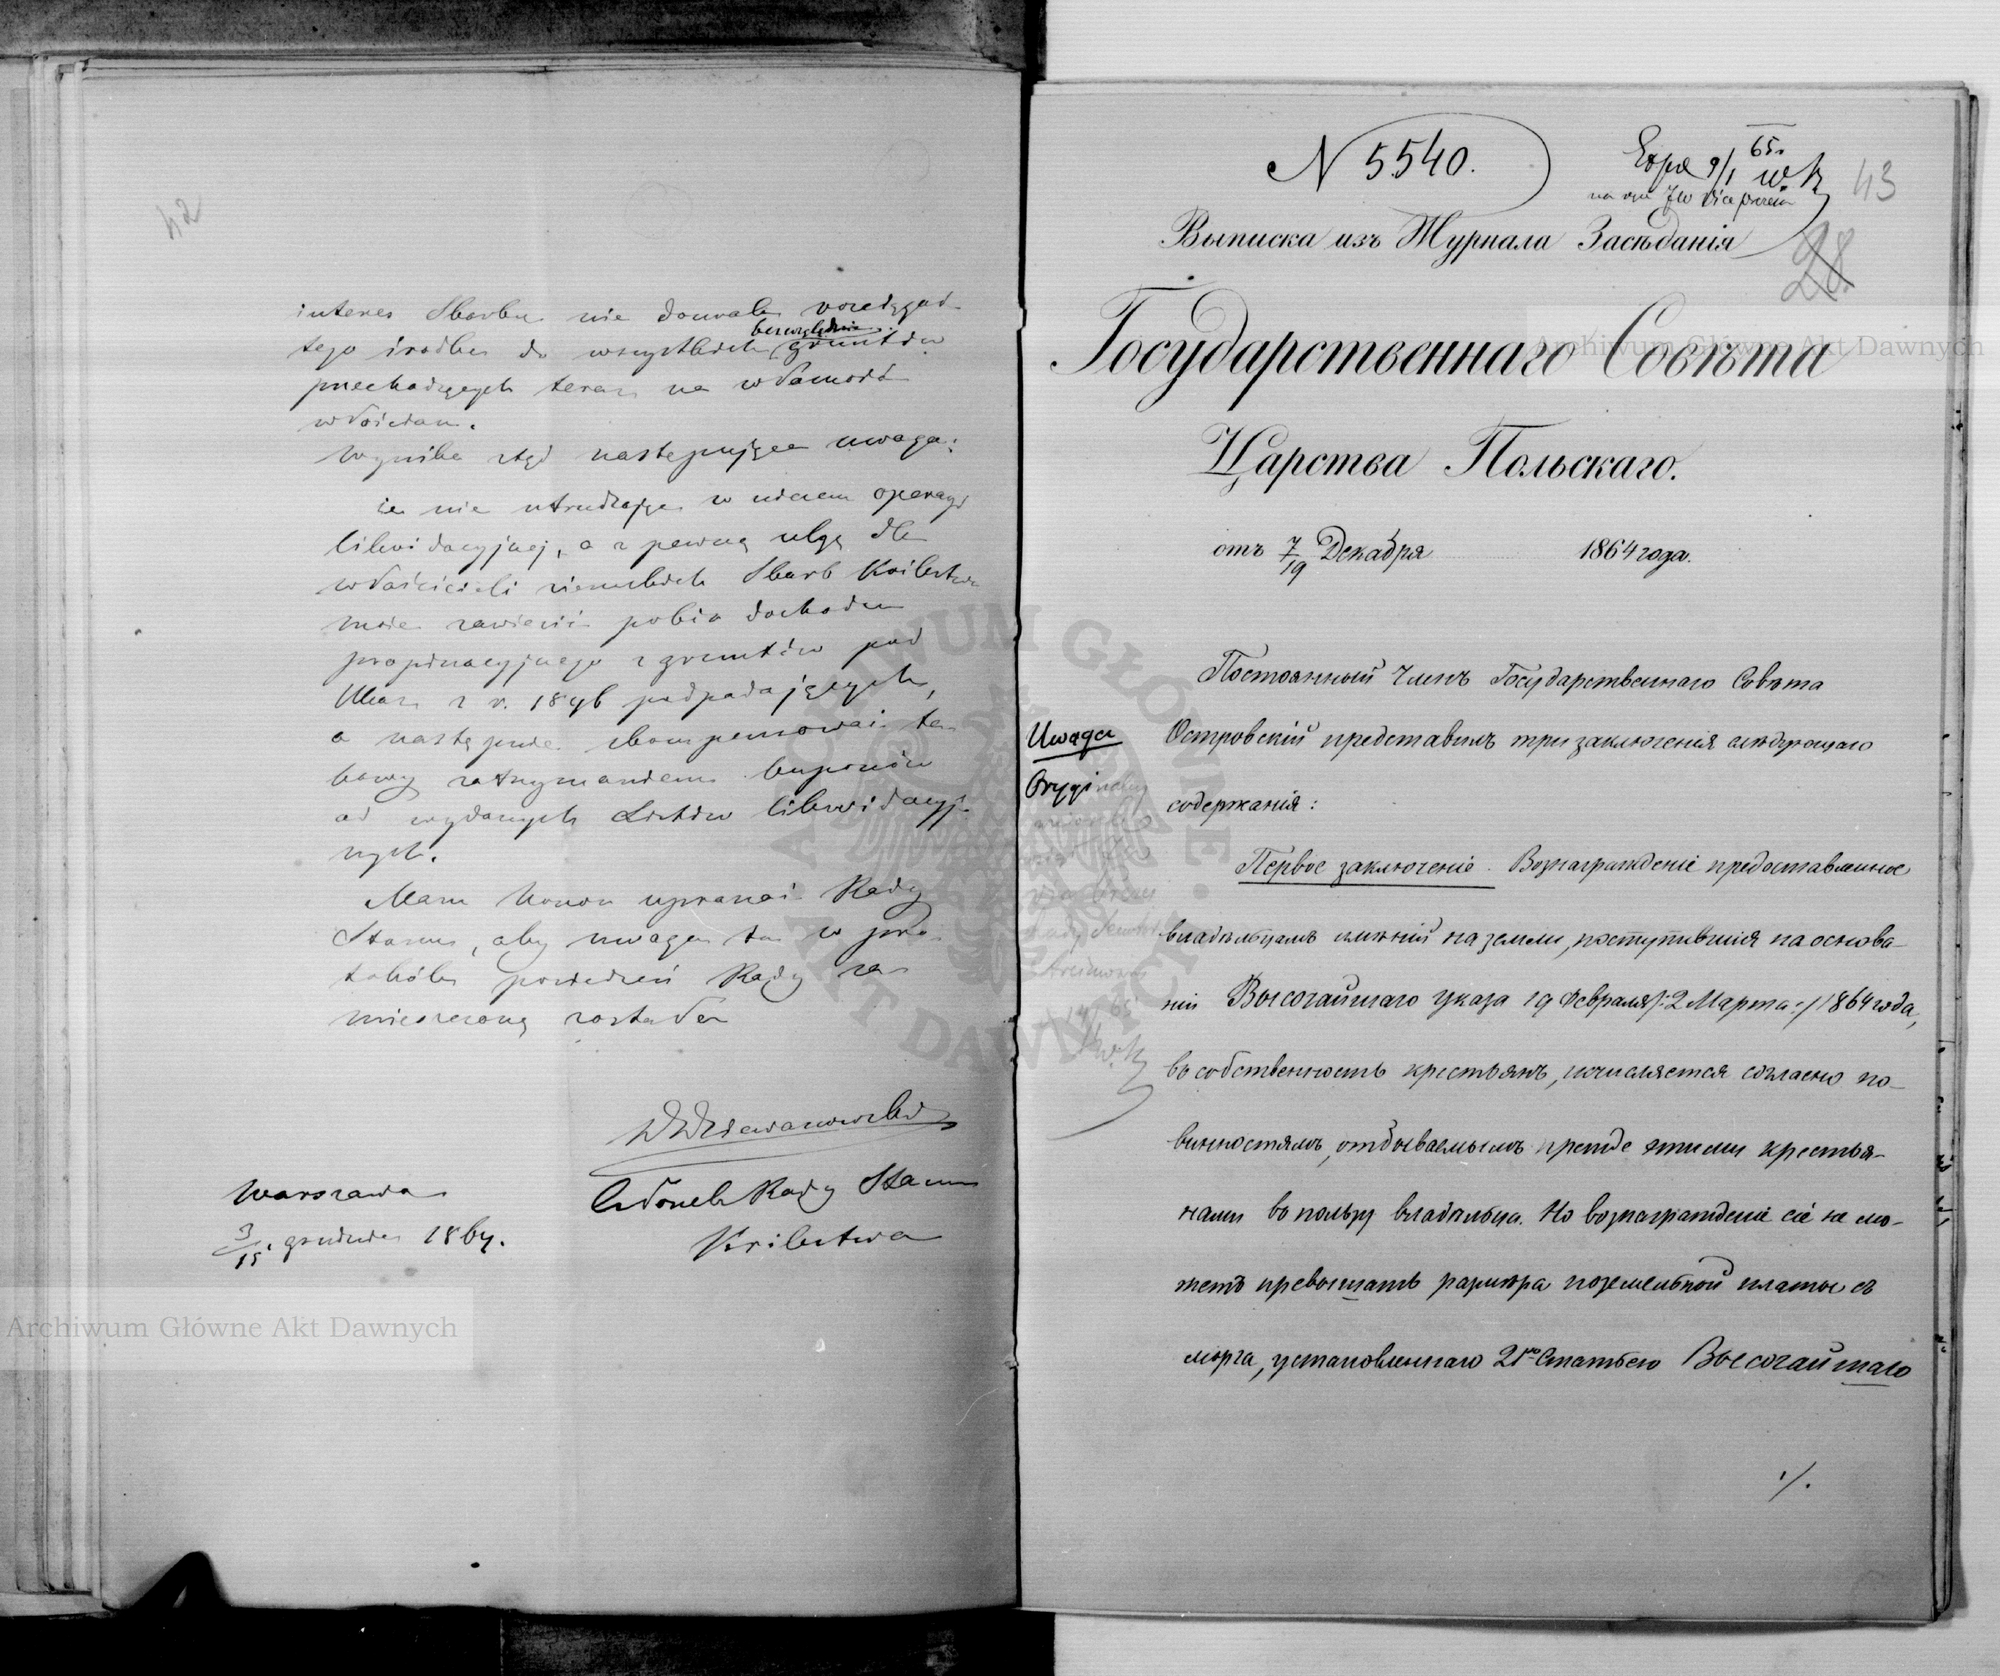 42
interes Skarbu nie dozwala rozciągać
tego środka do wszystkich bezwzględnie gruntów
przechodzących teraz na własność
włościan.
Wynika stąd następująca uwaga:
że nie utrudzając w niczem operacyi
likwidacyjnej, a z pewną ulgą dla
właścicieli ziemskich Skarb Królestwa
może zawiesić pobór dochodu
propinacyjnego z gruntów pod
Ukaz z r. 1846 podpadających,
a następnie skompensować ta-
kowy zatrzymaniem kuponów
od wydanych Listów likwidacyj-
nych.
Mam honor upraszać Rady
Stanu, aby uwaga ta w pro-
tokóle posiedzeń Rady za-
mieszczoną została
Członek Rady Stanu
Królestwa
Warszawa
3/15 grudnia 1864.
N 5540.
Expe 9/1 65
43
28
Выписка изъ Журнала Засѣданія
Государственнаго Совѣта
Царства Польскаго.
отъ 7/19 Декабря 1864 года.
Постоянный Членъ Государственнаго Совѣта
Островскій представилъ три заключенія слѣдующаго
содержанія:
Uwaga
Oryginalny
Первое заключеніе. Вознагражденіе предоставленное
владѣльцамъ имѣній на земли, поступившія на основа-
ніи Высочайшаго указа 19 Февраля /:2 Марта:/ 1864 года,
въ собственность крестьянъ, исчисляется согласно по-
винностямъ, отбываемымъ прежде этими крестья-
нами въ пользу владѣльца. Но вознагражденіе сіе не мо-
жетъ превышать размѣра поземельной платы съ
морга, установленнаго 21ю Статьею Высочайшаго
./.
Archiwum Główne Akt Dawnych
Archiwum Główne Akt Dawnych